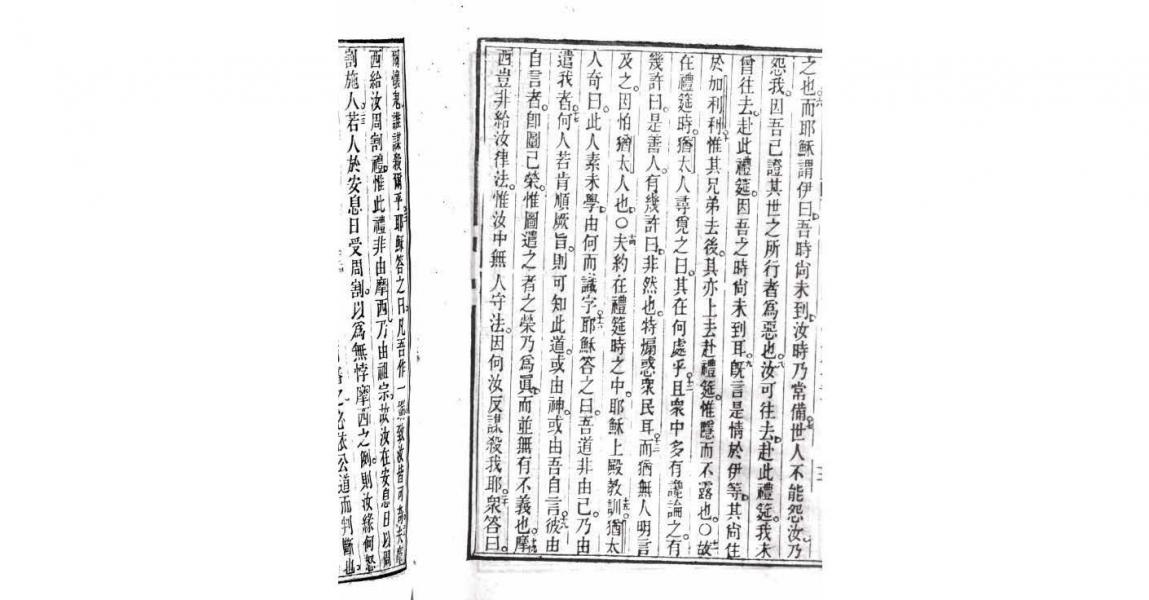 之也。六而耶穌謂伊曰。吾時尚未到。汝時乃常備。七世人不能怨汝。乃
怨我。因吾已證其世之所行者為惡也。八汝可往去。赴此禮筵。我未
曾往去。赴此禮筵。因吾之時尚未到耳。九既言是情於伊等。其尚住
於加利利。十惟其兄弟去後。其亦上去赴禮筵。惟隱而不露也。○十一故
在禮筵時。猶太人尋覓之曰。其在何處乎。十二且眾中多有讒論之。有
幾許曰。是善人。有幾許曰。非然也。特煽惑眾民耳。十三而猶無人明言
及之。因怕猶太人也。○十四夫約在禮筵時之中。耶穌上殿教訓。十五猶太
人奇曰。此人素未學。由何而識字。十六耶穌答之曰。吾道非由己。乃由
遣我者。十七何人若肯順厥旨。則可知此道。或由神。或由吾自言。十八彼由
自言者。卽圖己榮。惟圖遣之者之榮乃為眞。而並無有不義也。十九摩
西豈非給汝律法。惟汝中無人守法。因何汝反謀殺我耶。二十眾答曰。
懷鬼。誰謀殺爾乎。耶穌答之曰。凡吾作一致汝皆可奇。夫摩
西給汝周割禮。惟此禮非由摩西。乃由祖宗。故汝在安息日以周
割施人。若人於安息日受周割。以為無悖摩西之例。則汝緣何怒
之必依公道而判斷也。